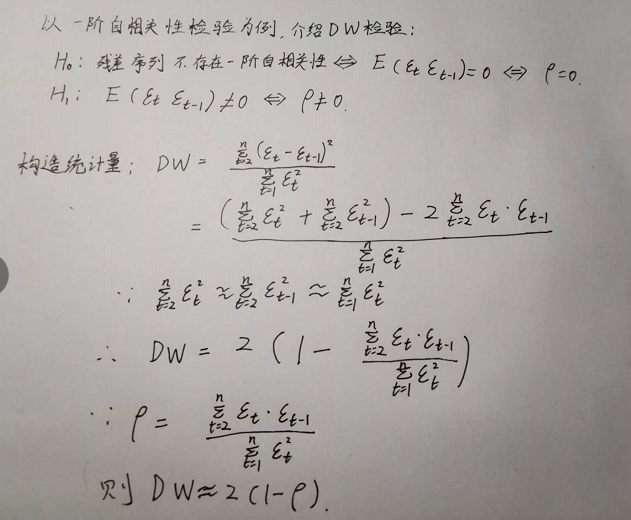 以一阶自相关性检验为例,介绍DW检验:
H₀: 残差序列不存在一阶自相关性 ⇔ E(εₜ εₜ₋₁)=0 ⇔ ρ=0.
H₁: E(εₜ εₜ₋₁)≠0 ⇔ ρ≠0.
构造统计量: DW = \frac{\sum_{t=2}^{n}(ε_t-ε_{t-1})^2}{\sum_{t=1}^{n}ε_t^2}
= \frac{(\sum_{t=2}^{n}ε_t^2+\sum_{t=2}^{n}ε_{t-1}^2)-2\sum_{t=2}^{n}ε_t·ε_{t-1}}{\sum_{t=1}^{n}ε_t^2}
∵ \sum_{t=2}^{n}ε_t^2≈\sum_{t=2}^{n}ε_{t-1}^2≈\sum_{t=1}^{n}ε_t^2
∴ DW = 2(1-\frac{\sum_{t=2}^{n}ε_t·ε_{t-1}}{\sum_{t=1}^{n}ε_t^2})
∵ ρ = \frac{\sum_{t=2}^{n}ε_t·ε_{t-1}}{\sum_{t=1}^{n}ε_t^2}
则 DW≈2(1-ρ).